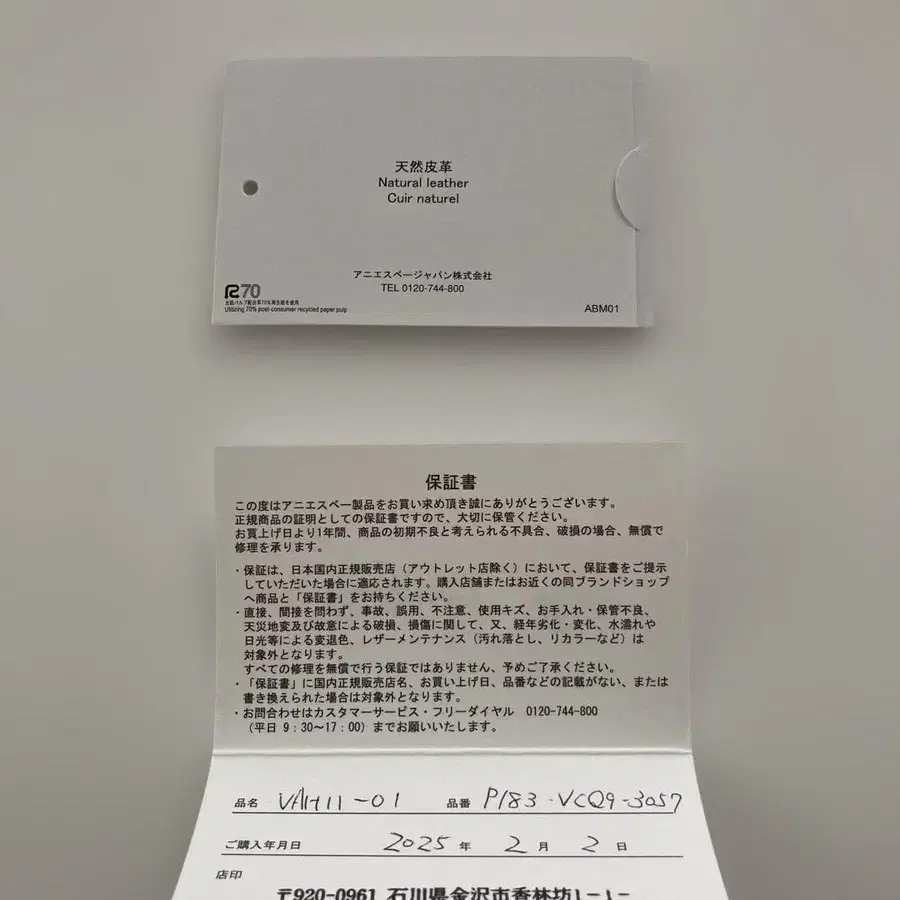 天然皮革
Natural leather
Cuir naturel
アニエスベージャパン株式会社
TEL 0120-744-800
R70
古紙パルプ配合率70%再生紙を使用
Utilizing 70% post-consumer recycled paper pulp
ABM01
保証書
この度はアニエスベー製品をお買い求め頂き誠にありがとうございます。
正規商品の証明としての保証書ですので、大切に保管ください。
お買上げ日より1年間、商品の初期不良と考えられる不具合、破損の場合、無償で
修理を承ります。
・保証は、日本国内正規販売店（アウトレット店除く）において、保証書をご提示
していただいた場合に適応されます。購入店舗またはお近くの同ブランドショップ
へ商品と「保証書」をお持ちください。
・直接、間接を問わず、事故、誤用、不注意、使用キズ、お手入れ・保管不良、
天災地変及び故意による破損、損傷に関して、又、経年劣化・変化、水濡れや
日光等による変退色、レザーメンテナンス（汚れ落とし、リカラーなど）は
対象外となります。
すべての修理を無償で行う保証ではありません、予めご了承ください。
・「保証書」に国内正規販売店名、お買い上げ日、品番などの記載がない、または
書き換えられた場合は対象外となります。
・お問合わせはカスタマーサービス・フリーダイヤル　0120-744-800
（平日 9：30～17：00）までお願いいたします。
品名 VAH11-01 品番 P183-VCQ9-3057
ご購入年月日 2025 年 2 月 2 日
店印
〒920-0961 石川県金沢市香林坊1-1-